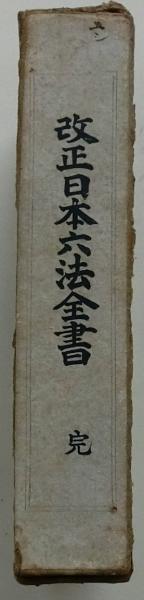 改正日本六法全書
完